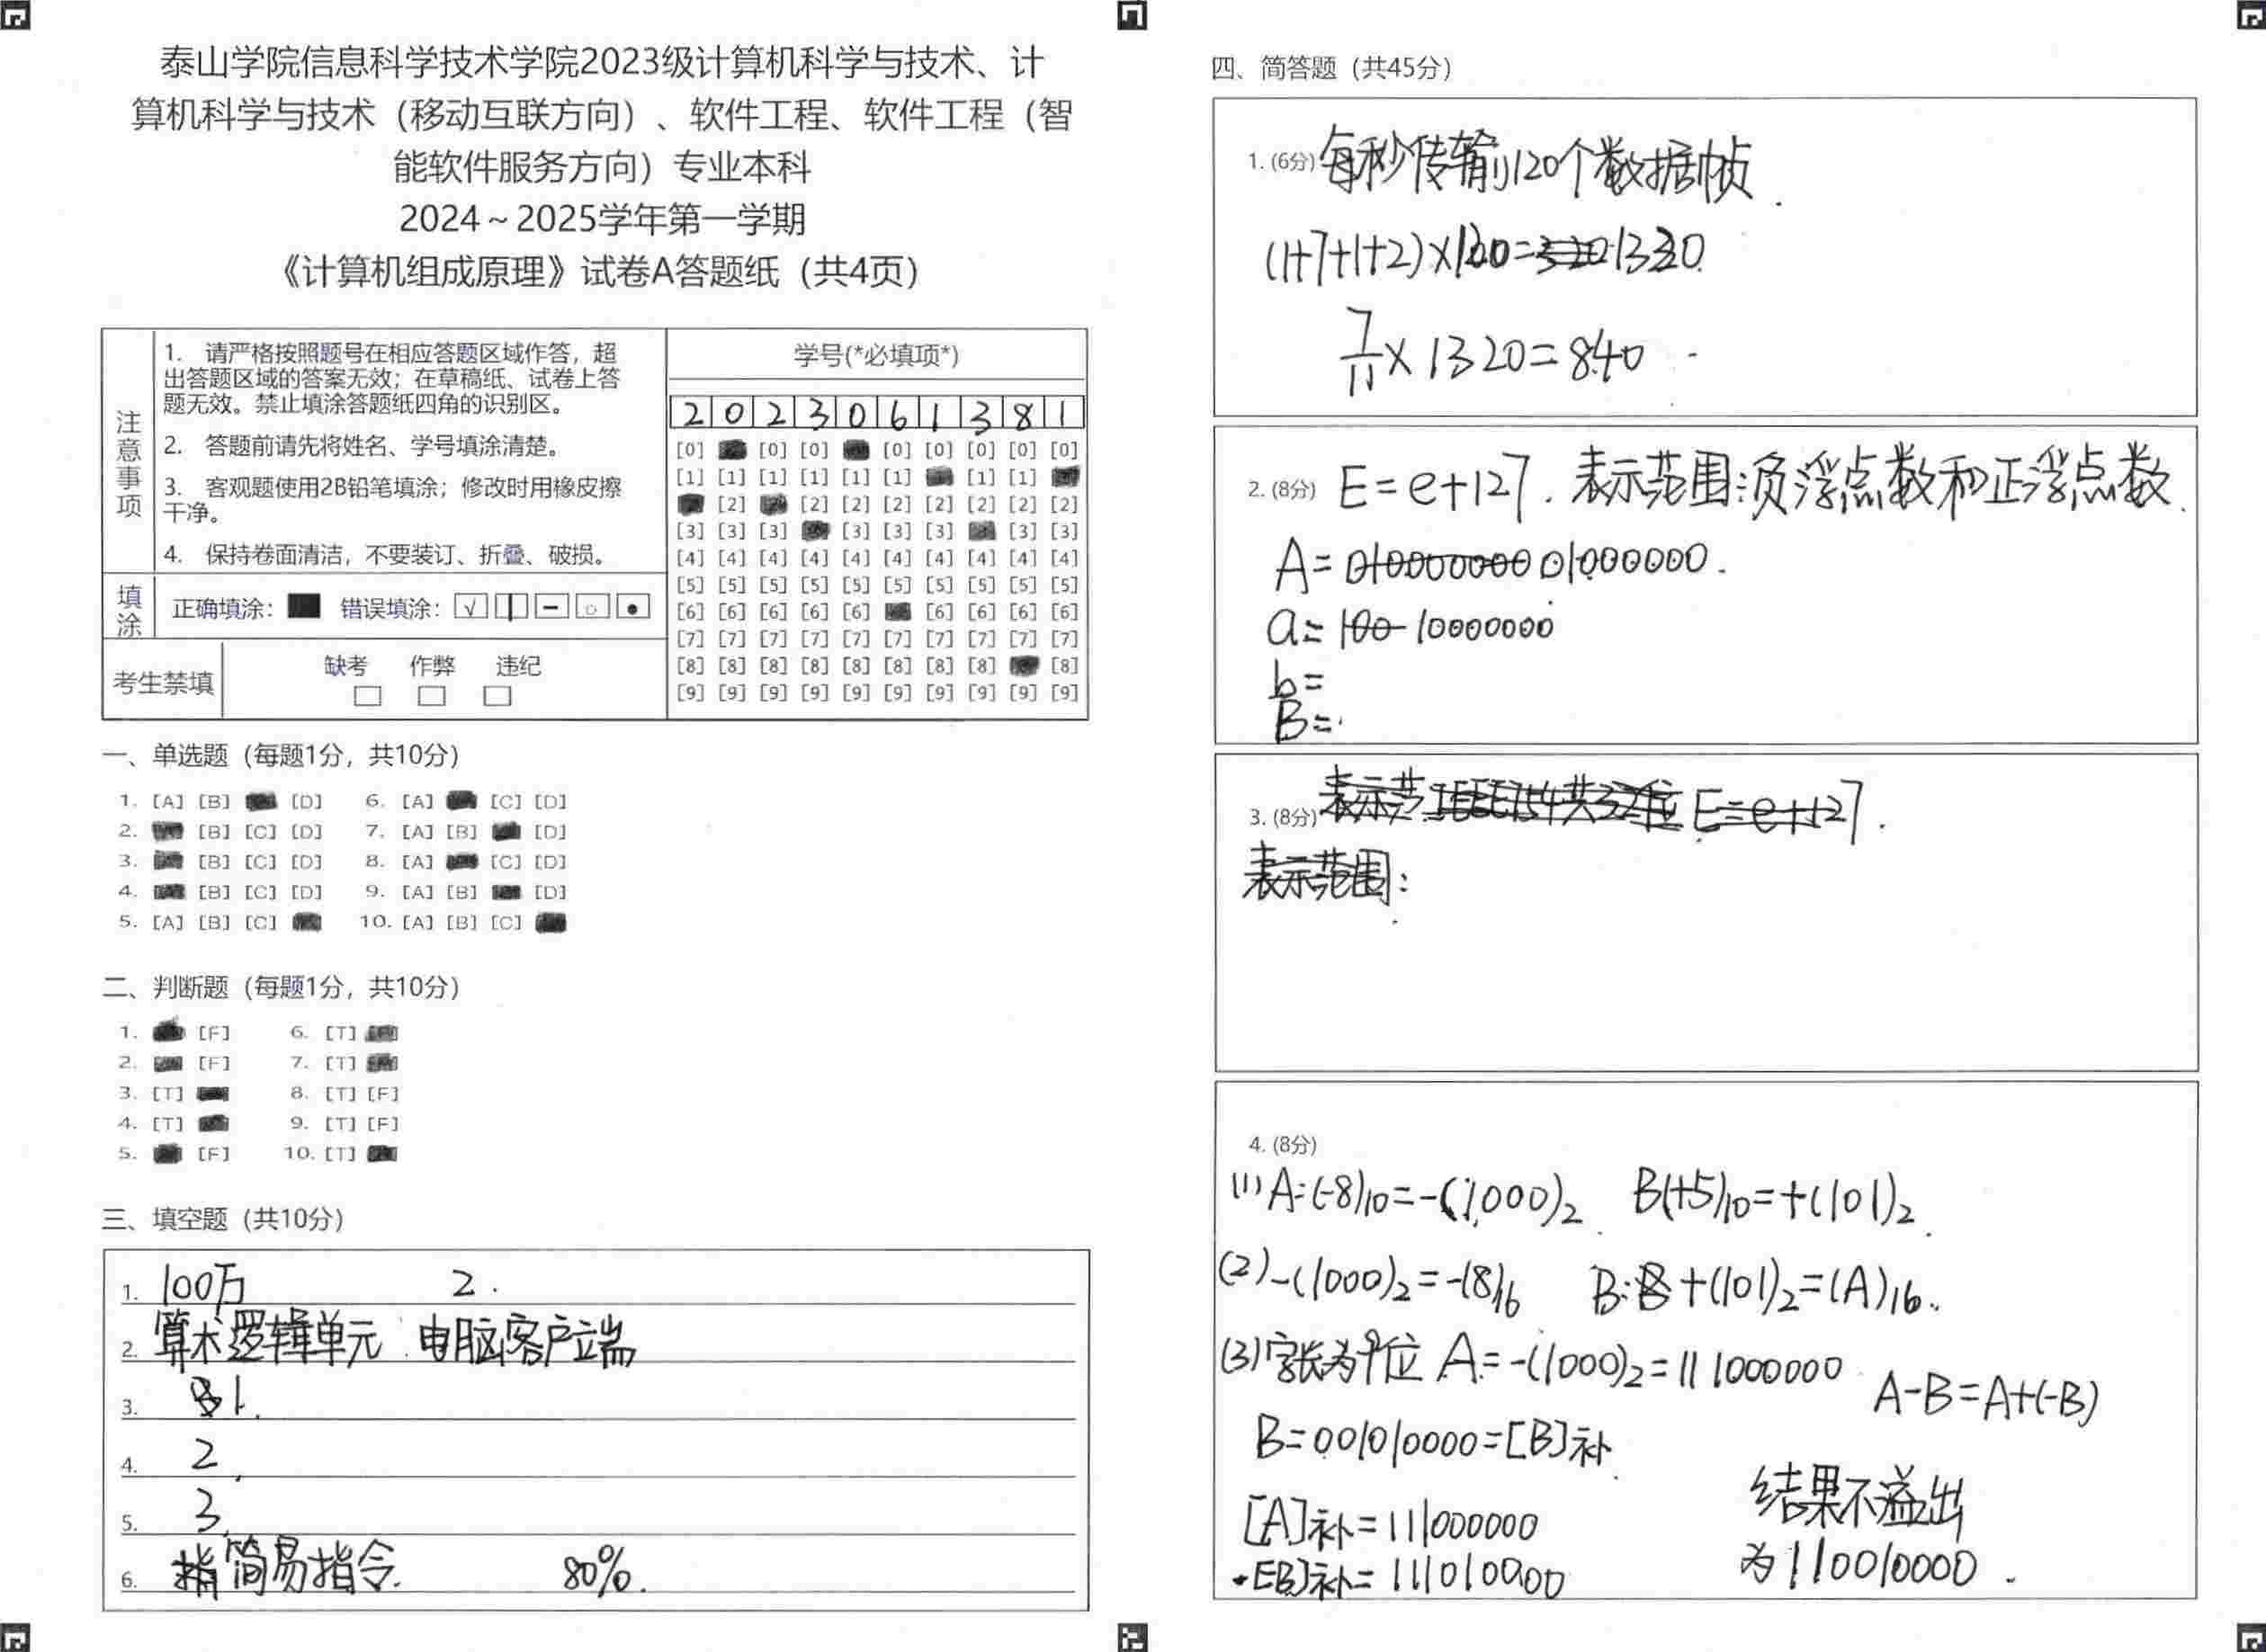 泰山学院信息科学技术学院2023级计算机科学与技术、计
算机科学与技术（移动互联方向）、软件工程、软件工程（智
能软件服务方向）专业本科
2024～2025学年第一学期
《计算机组成原理》试卷A答题纸（共4页）
注意事项
1. 请严格按照题号在相应答题区域作答，超
出答题区域的答案无效；在草稿纸、试卷上答
题无效。禁止填涂答题纸四角的识别区。
2. 答题前请先将姓名、学号填涂清楚。
3. 客观题使用2B铅笔填涂；修改时用橡皮擦
干净。
4. 保持卷面清洁，不要装订、折叠、破损。
填涂
正确填涂： 错误填涂：
考生禁填
缺考 作弊 违纪
学号(*必填项*)
2 0 2 3 0 6 1 3 8 1
[0] [0] [0] [0] [0] [0] [0] [0]
[1] [1] [1] [1] [1] [1] [1] [1]
[2] [2] [2] [2] [2] [2] [2] [2]
[3] [3] [3] [3] [3] [3] [3] [3]
[4] [4] [4] [4] [4] [4] [4] [4] [4] [4]
[5] [5] [5] [5] [5] [5] [5] [5] [5] [5]
[6] [6] [6] [6] [6] [6] [6] [6] [6]
[7] [7] [7] [7] [7] [7] [7] [7] [7] [7]
[8] [8] [8] [8] [8] [8] [8] [8] [8]
[9] [9] [9] [9] [9] [9] [9] [9] [9] [9]
一、单选题（每题1分，共10分）
1. [A] [B] [D] 6. [A] [C] [D]
2. [B] [C] [D] 7. [A] [B] [D]
3. [B] [C] [D] 8. [A] [C] [D]
4. [B] [C] [D] 9. [A] [B] [D]
5. [A] [B] [C] 10. [A] [B] [C]
二、判断题（每题1分，共10分）
1. [F] 6. [T]
2. [F] 7. [T]
3. [T] 8. [T] [F]
4. [T] 9. [T] [F]
5. [F] 10. [T]
三、填空题（共10分）
1. 100万 2.
2. 算术逻辑单元 电脑客户端
3. 1.
4. 2
5. 3
6. 简易指令. 80%.
四、简答题（共45分）
1. (6分) 每秒传输120个数据帧.
(1+7+1+2)×120=1320
7/11 × 1320=840
2. (8分) E=e+127. 表示范围:负浮点数和正浮点数.
A= 01000000.
a= 10000000
b=
B=
3. (8分) 表示范 IEEE754共32位 E=e+127.
表示范围:
4. (8分)
(1) A=(-8)10=-(1000)2 B(+5)10=+(101)2.
(2) -(1000)2=-(8)16 B: +(101)2=(A)16.
(3) 字长为9位 A=-(1000)2=111000000 A-B=A+(-B)
B=001010000=[B]补
[A]补=111000000 结果不溢出
[-B]补=111010000 为110010000.